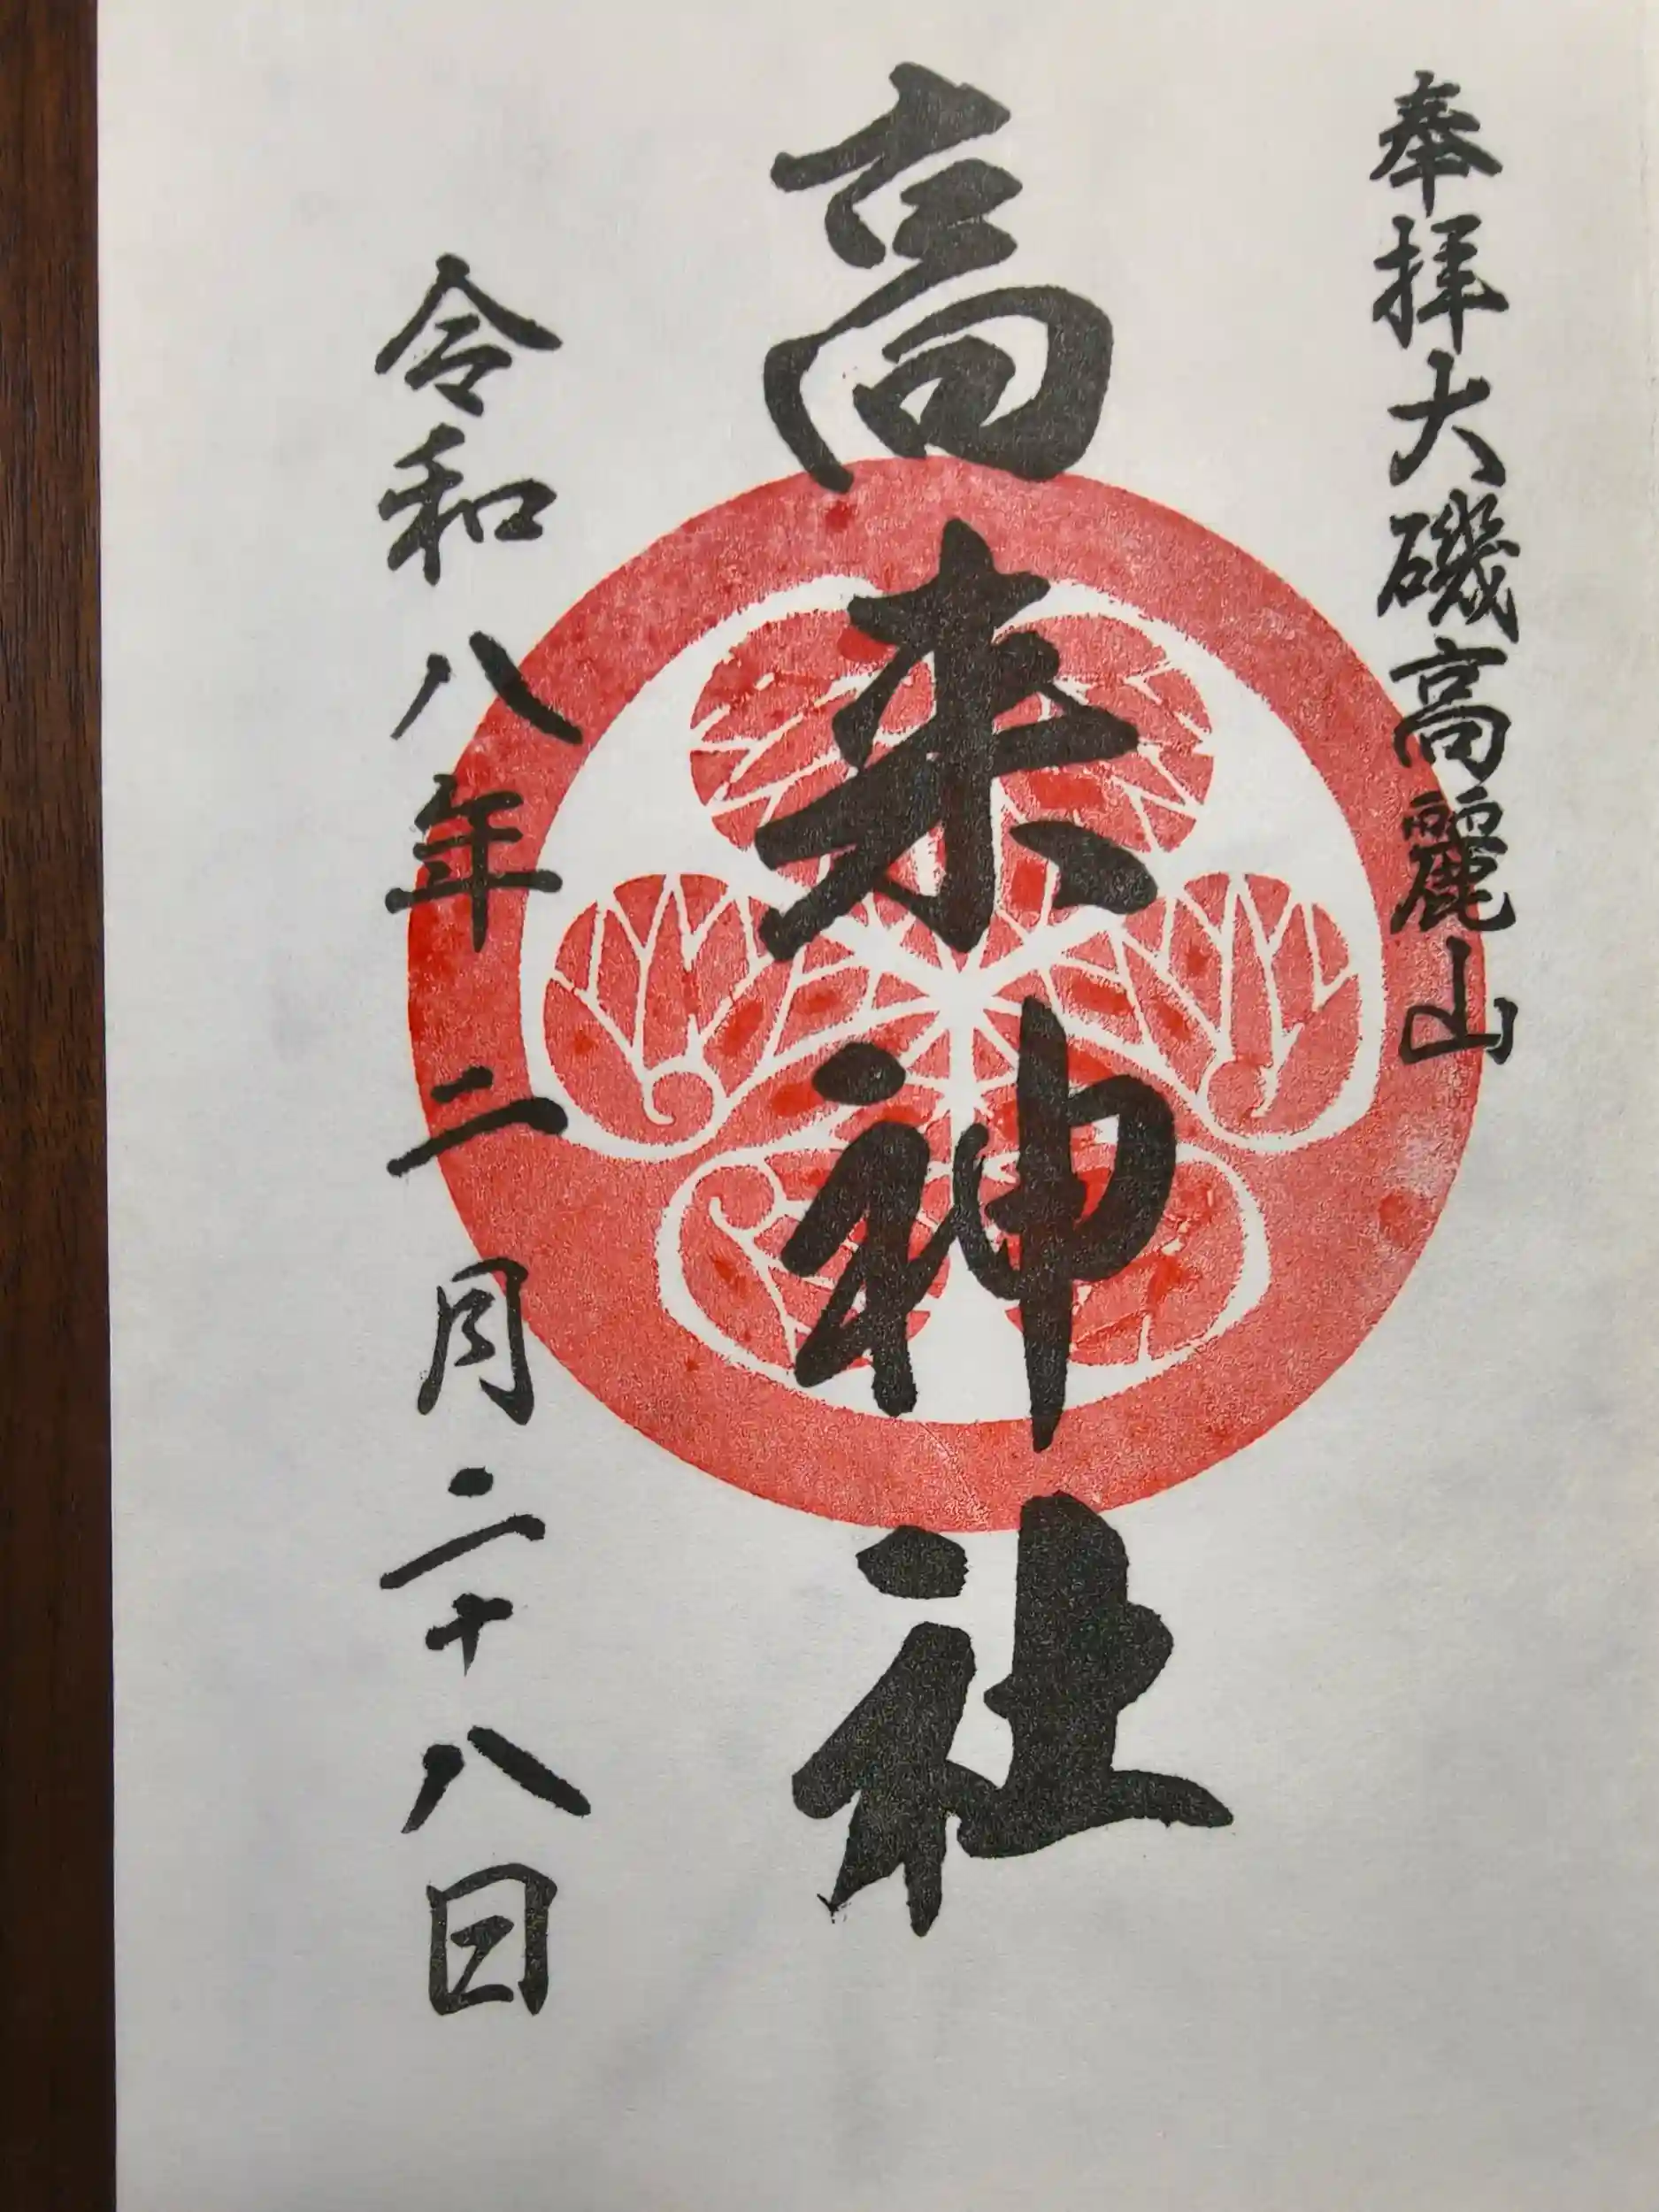 奉拝大磯高麗山
高来神社
令和八年二月二十八日